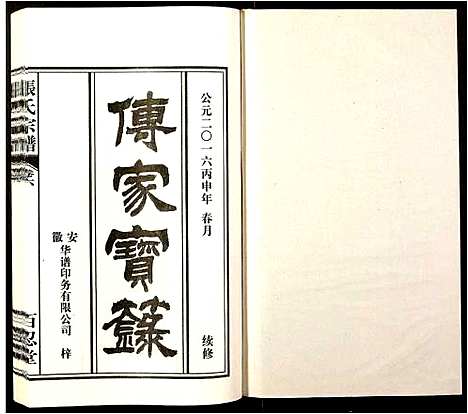 公元二〇一六丙申年 春月
续修
傳家寶籙
安徽华谱印务有限公司 梓
張氏宗譜
百忍堂